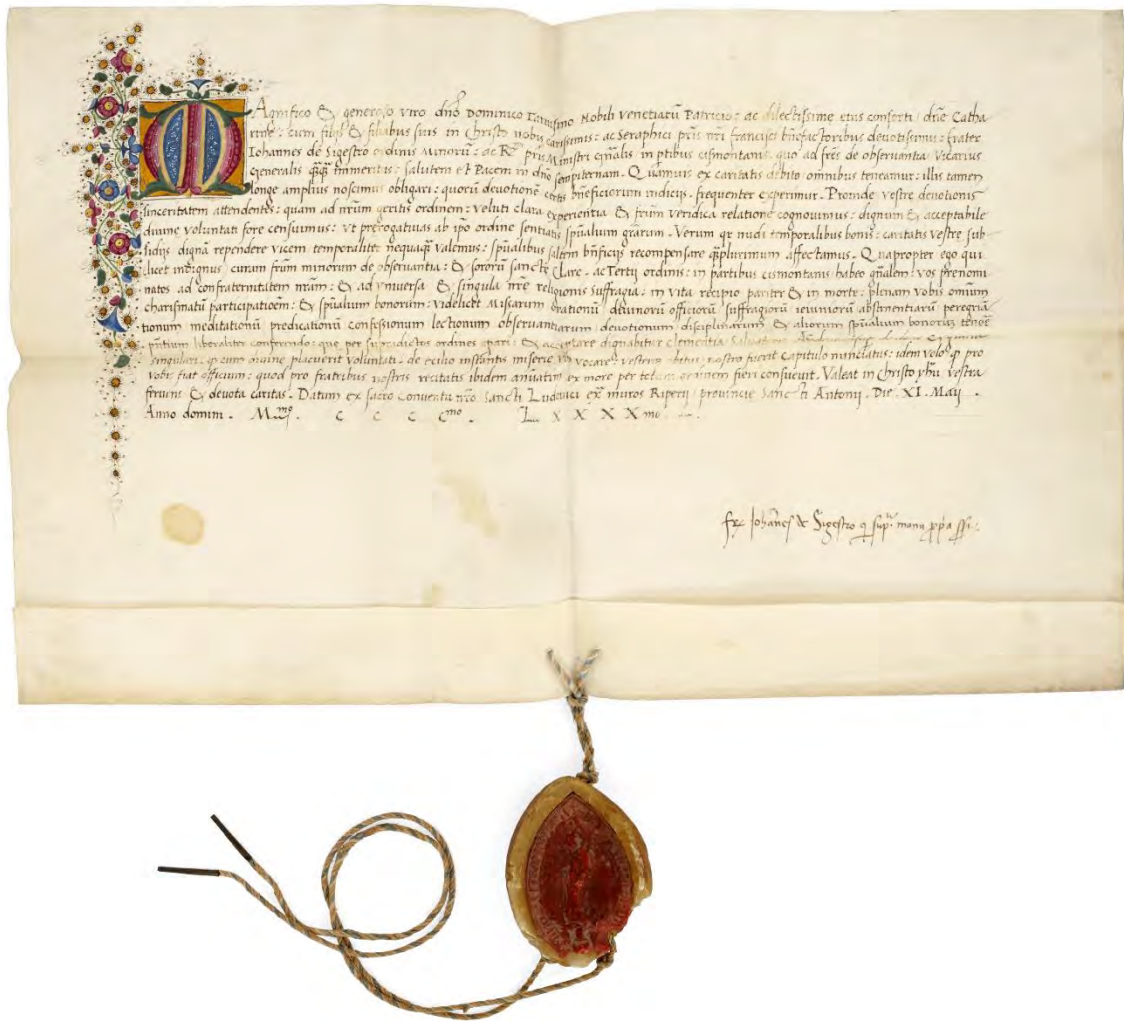 MAgnifico & generoso viro dño Dominico Nobili Venetiarũ Patricio: ac dilectissime eius consorti dñe Catha
rine: cum filijs & filiabus suis in christo nobis carissimis: ac Seraphici pr̃is nr̃i francisci bñefactoribus devotissimis: frater
Iohannes de Sigestro ordinis Minorũ: ac Rᵐⁱ pr̃is Ministri gñalis in ptibus cismontanis, quo ad fr̃es de observantia Vicarius
generalis immeritus: Salutem et Pacem in dño sempiternam. Quamvis ex caritatis debito omnibus teneamur: illis tamen
longe amplius noscimus obligari: quorũ devotionẽ certis bñeficiorum indicijs, frequenter experimur. Proinde vestre devotionis
sinceritatem attendentes: quam ad nr̃um geritis ordinem: veluti clara experientia & fr̃um veridica relatione cognovimus: dignum & acceptabile
divine voluntati fore censuimus: ut prerogativas ab ipo ordine sentiatis spũalium gr̃arum. Verum qr nudi temporalibus bonis: caritatis vestre sub
sidijs dignã rependere vicem temporaliter nequaq̃ valemus: spũalibus saltem bñficijs recompensare q̃plurimum affectamus. Quapropter ego qui
licet indignus curam fr̃um minorum de observantia: & sororũ sancte Clare, ac Tertij ordinis: in partibus cismontanis habeo gñalem: vos prenomi
natos ad confraternitatem nr̃am: & ad universa & singula nr̃e religionis suffragia: in vita recipio pariter & in morte: plenam vobis omniũ
charismatũ participatioẽm: & spũalium bonorum: videlicet Missarum orationũ divinorũ officiorũ suffragiorũ ieiuniorũ abstinentiarũ peregria
tionum meditationũ predicationũ confessionum lectionum observantiarum devotionum disciplinarum & aliorum spũalium bonorus tenoẽ
pñtium liberaliter conferendo: que per supradictos ordines opari: & acceptare dignabitur clementia Salvatoris
singulari, q̨ cum divine placuerit voluntati, de exilio instantis miserie vos vocare: vesterq̃ obitus nostro fuerit capitulo nunciatus: idem volo q̨ pro
vobis fiat officium: quod pro fratribus nostris recitatis ibidem anuatim ex more per totum ordinem fieri consuevit. Valeat in christo yhũ vestra
fervens & devota caritas. Datum ex sacro conventu nr̃o Sancti Ludovici ex̃ muros Riperij provincie Sancti Antonij. Die XI. Maij
Anno domini. Mᵐᵒ. C C C Cᵐᵒ L X X X Xᵐᵒ
fr̃ Johãnes de Sigestro q̨ supᵃ manu pp̃a ss̃i: